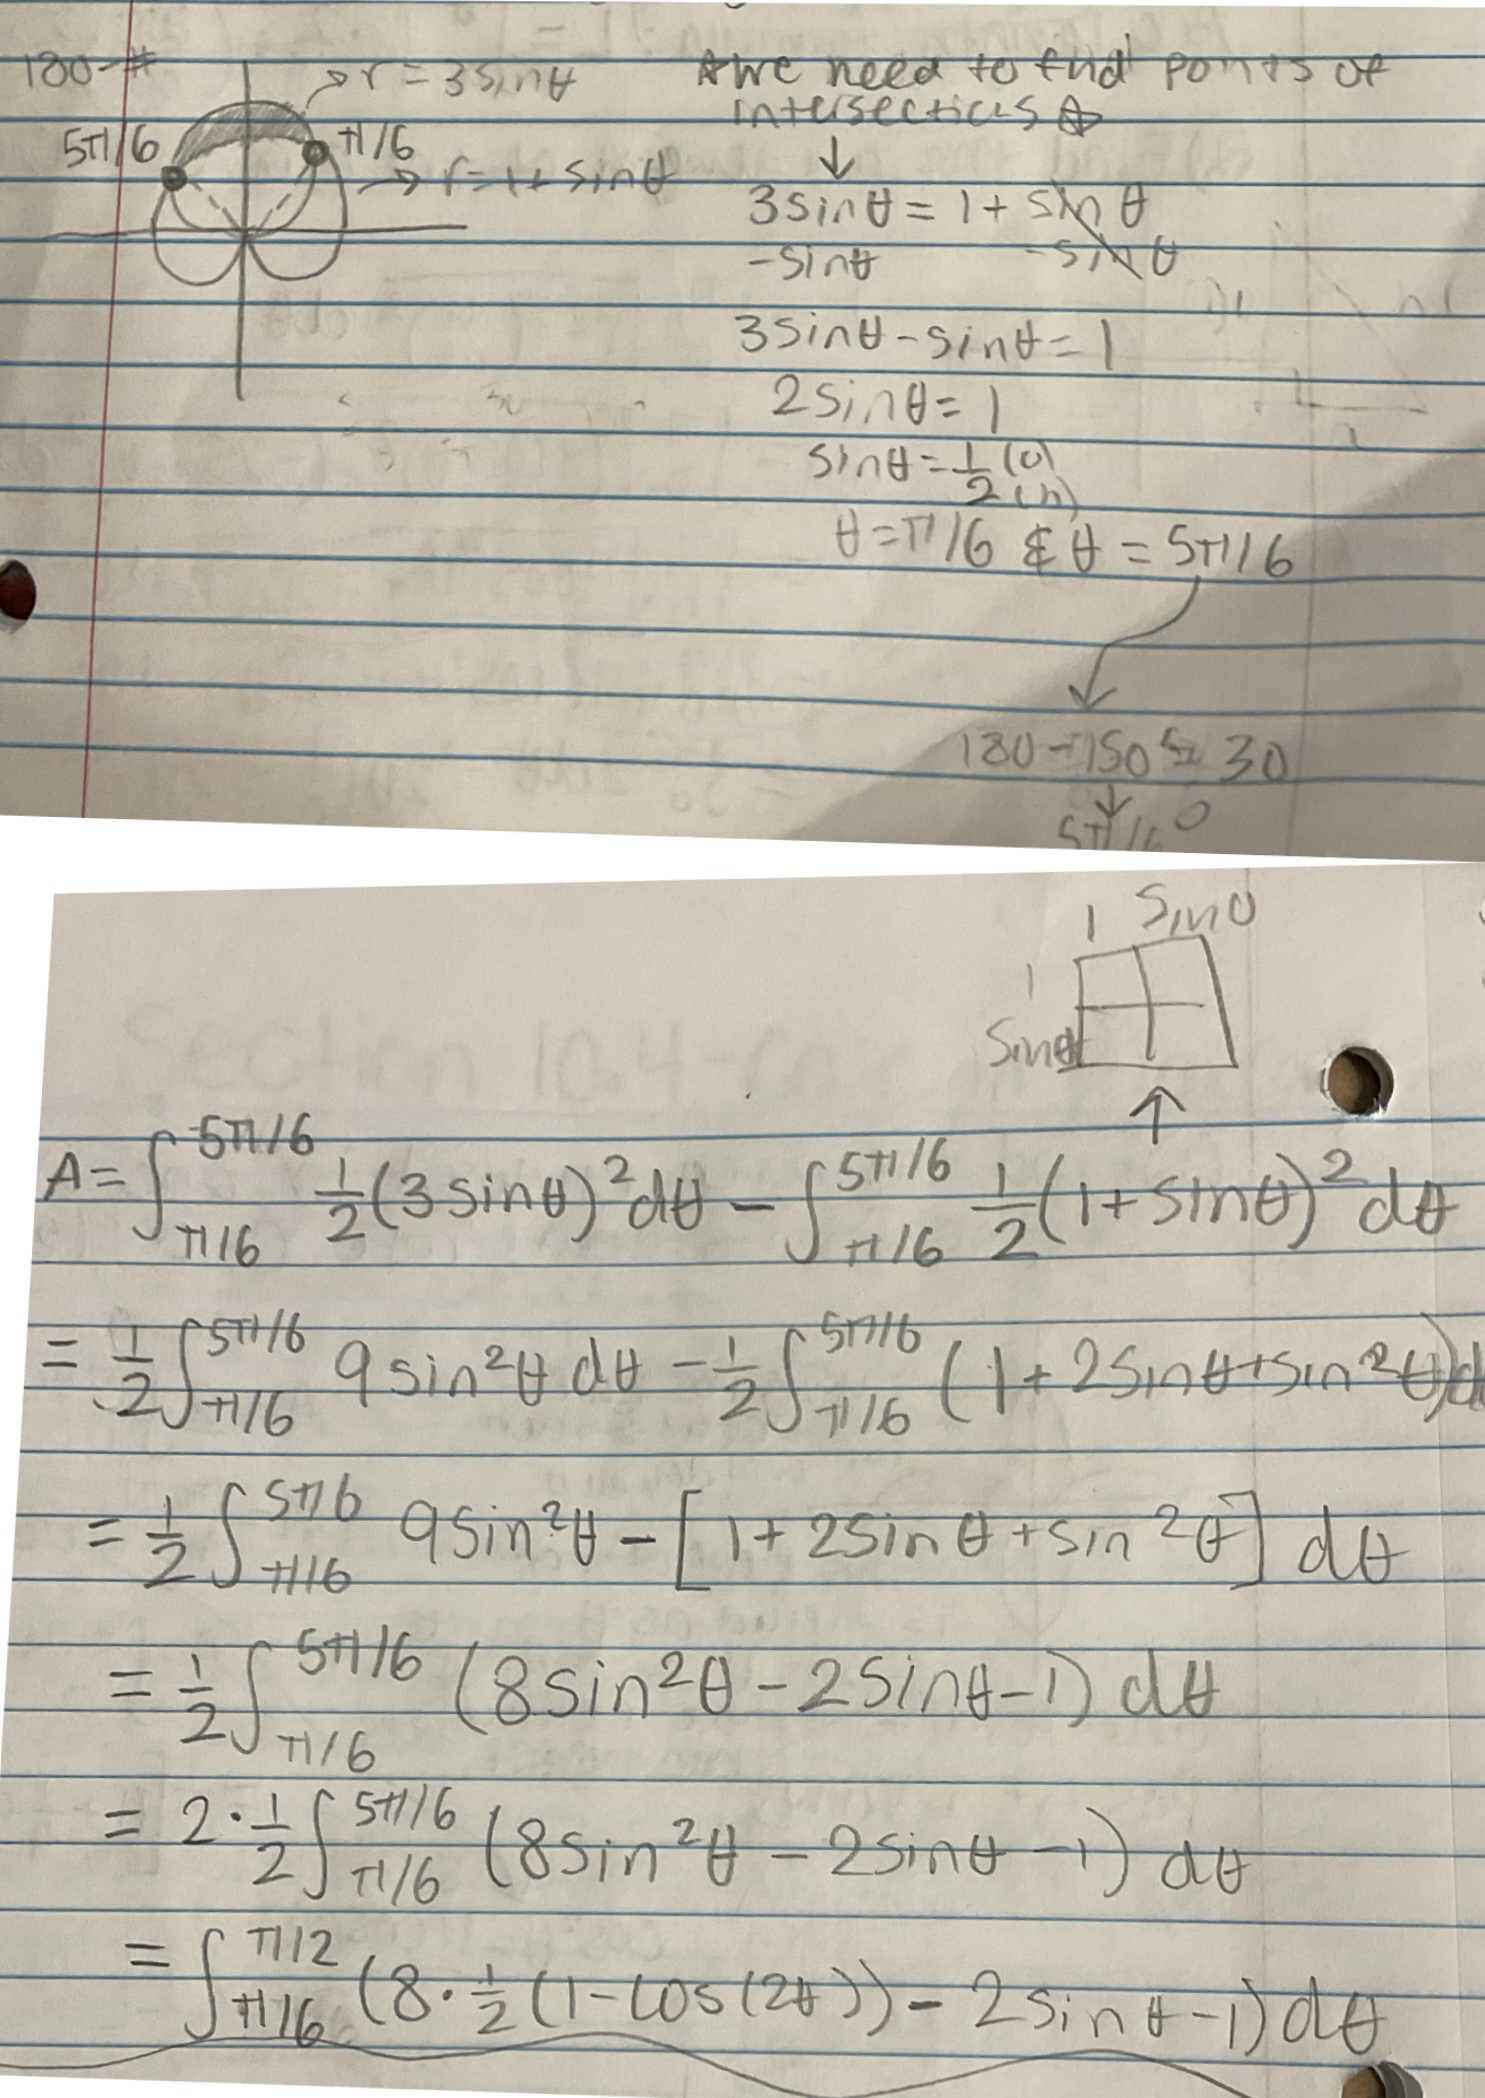 180-#
r = 3sinθ
5π/6
π/6
r=1+sinθ
☆we need to find points of
intersections☆
↓
3sinθ = 1 + sinθ
-sinθ -sinθ
3sinθ - sinθ = 1
2sinθ = 1
sinθ = 1/2 (o)/(h)
θ = π/6 & θ = 5π/6
180-150 = 30
↓
5π/6
1 sinθ
1
sinθ
↑
A = ∫_{π/6}^{5π/6} 1/2 (3sinθ)² dθ - ∫_{π/6}^{5π/6} 1/2 (1+sinθ)² dθ
= 1/2 ∫_{π/6}^{5π/6} 9sin²θ dθ - 1/2 ∫_{π/6}^{5π/6} (1+2sinθ+sin²θ)d
= 1/2 ∫_{π/6}^{5π/6} 9sin²θ - [1+2sinθ+sin²θ] dθ
= 1/2 ∫_{π/6}^{5π/6} (8sin²θ - 2sinθ - 1) dθ
= 2 · 1/2 ∫_{π/6}^{5π/6} (8sin²θ - 2sinθ - 1) dθ
= ∫_{π/6}^{π/2} (8 · 1/2 (1-cos(2θ)) - 2sinθ - 1) dθ